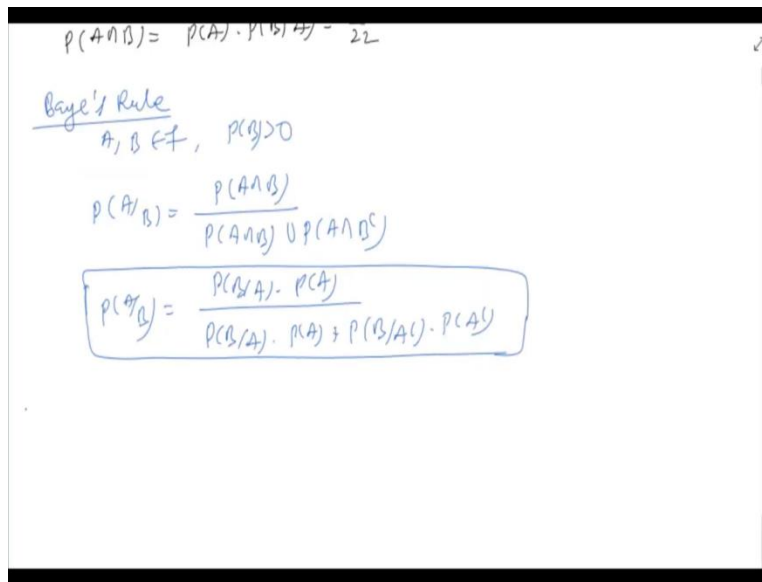 P(A∩B) = P(A) . P(B/A) = 22
Baye's Rule
A, B ∈ f, P(B)>0
P(A/B) = P(A∩B)
P(A∩B) ∪ P(A∩B^c)
P(A/B) = P(B/A) . P(A)
P(B/A) . P(A) + P(B/A^c) . P(A^c)